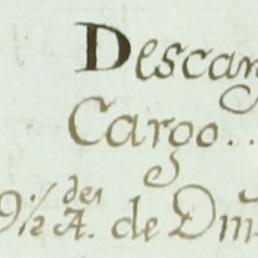 Descar
Cargo..
9½ des A. de Dm